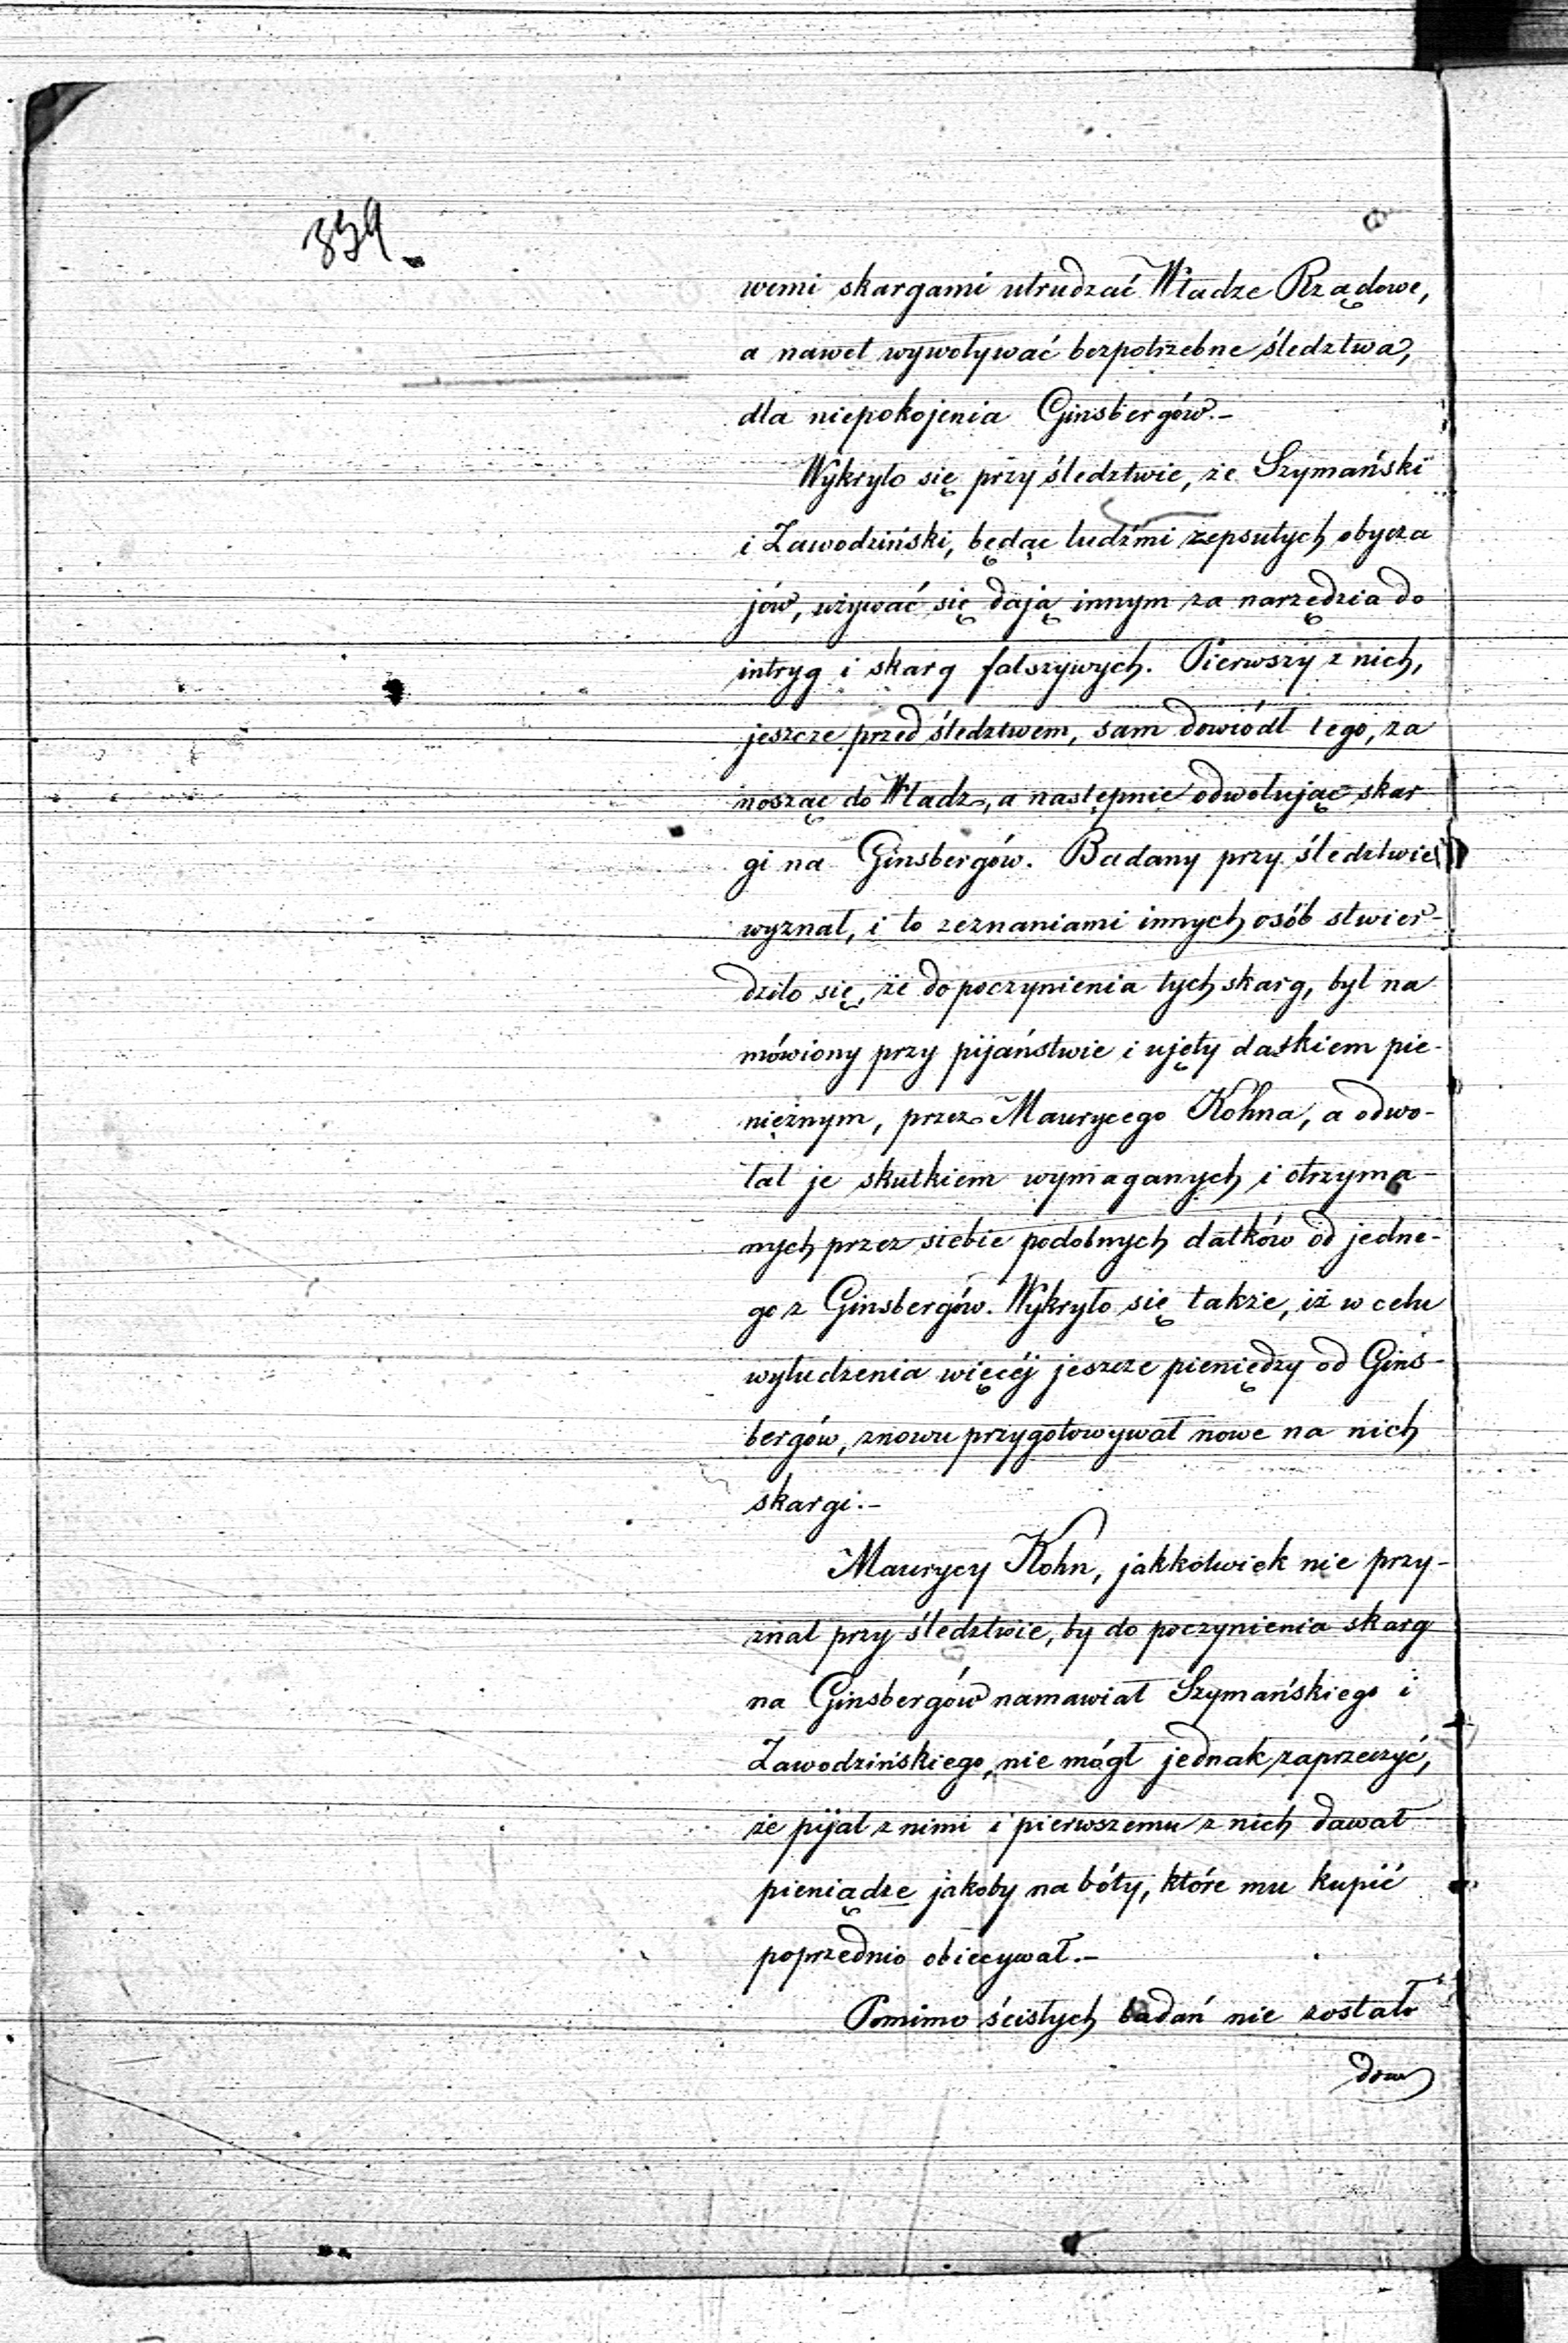 339
wemi skargami utrudzać Władze Rządowe,
a nawet wywoływać bezpotrzebne śledztwa,
dla niepokojenia Ginsbergów.-
Wykryło się przy śledztwie, że Szymański
i Zawodziński, będąc ludźmi zepsutych obycza
jów, używać się dają innym za narzędzia do
intryg i skarg fałszywych. Pierwszy z nich,
jeszcze przed śledztwem, sam dowiódł tego, za
nosząc do Władz, a następnie odwołując skar
gi na Ginsbergów. Badany przy śledztwie
wyznał, i to zeznaniami innych osób stwier-
dziło się, że do poczynienia tych skarg, był na
mówiony przy pijaństwie i ujęty datkiem pie-
niężnym, przez Maurycego Kohna, a odwo-
łał je skutkiem wymaganych i otrzyma-
nych przez siebie podobnych datków od jedne-
go z Ginsbergów. Wykryło się także, iż w celu
wyłudzenia więcéj jeszcze pieniędzy od Gins-
bergów, znowu przygotowywał nowe na nich
skargi.-
Maurycy Kohn, jakkolwiek nie przy-
znał przy śledztwie, by do poczynienia skarg
na Ginsbergów namawiał Szymańskiego i
Zawodzińskiego, nie mógł jednak zaprzeczyć,
że pijał z nimi i pierwszemu z nich dawał
pieniądze jakoby na bóty, które mu kupić
poprzednio obiecywał.-
Pomimo ścisłych badań nie zostało
dow